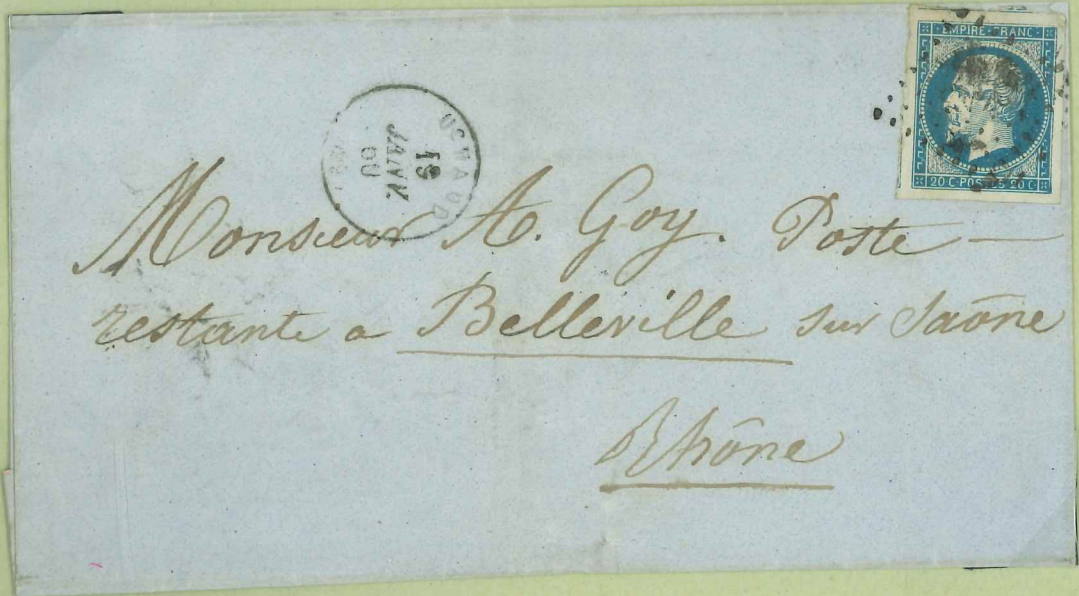 EMPIRE FRANC
20 C POSTES 20 C
UCHAUD
19
JANV.
60
Monsieur A. Goy. Poste —
restante a Belleville sur Saône
Rhône